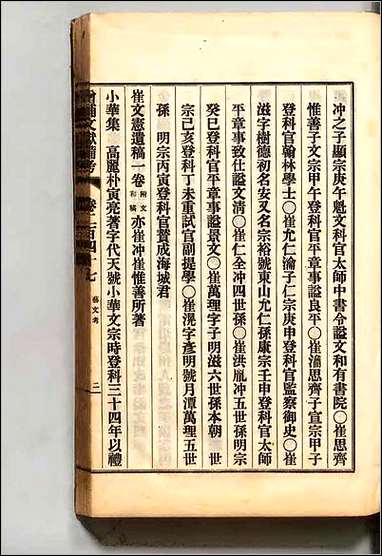 冲之子顯宗庚午魁文科官太師中書令諡文和有書院〇崔思齊
惟善子文宗甲午登科官平章事諡良平〇崔瀹思齊子宣宗甲子
登科官翰林學士〇崔允仁瀹子仁宗庚申登科官監察御史〇崔
滋字樹德初名安又名宗裕號東山允仁孫康宗壬申登科官太師
平章事致仕諡文清〇崔仁全冲四世孫〇崔洪胤冲五世孫明宗
癸巳登科官平章事諡景文〇崔萬理字子明滋六世孫本朝 世
宗己亥登科丁未重試官副提學〇崔滉字彦明號月潭萬理五世
孫 明宗丙寅登科官贊成海城君
崔文憲遺稿一卷 附文和稿 亦崔冲崔惟善所著
小華集 高麗朴寅亮著字代天號小華文宗時登科三十四年以禮
增補文獻備考 卷二百四十七 藝文考 二